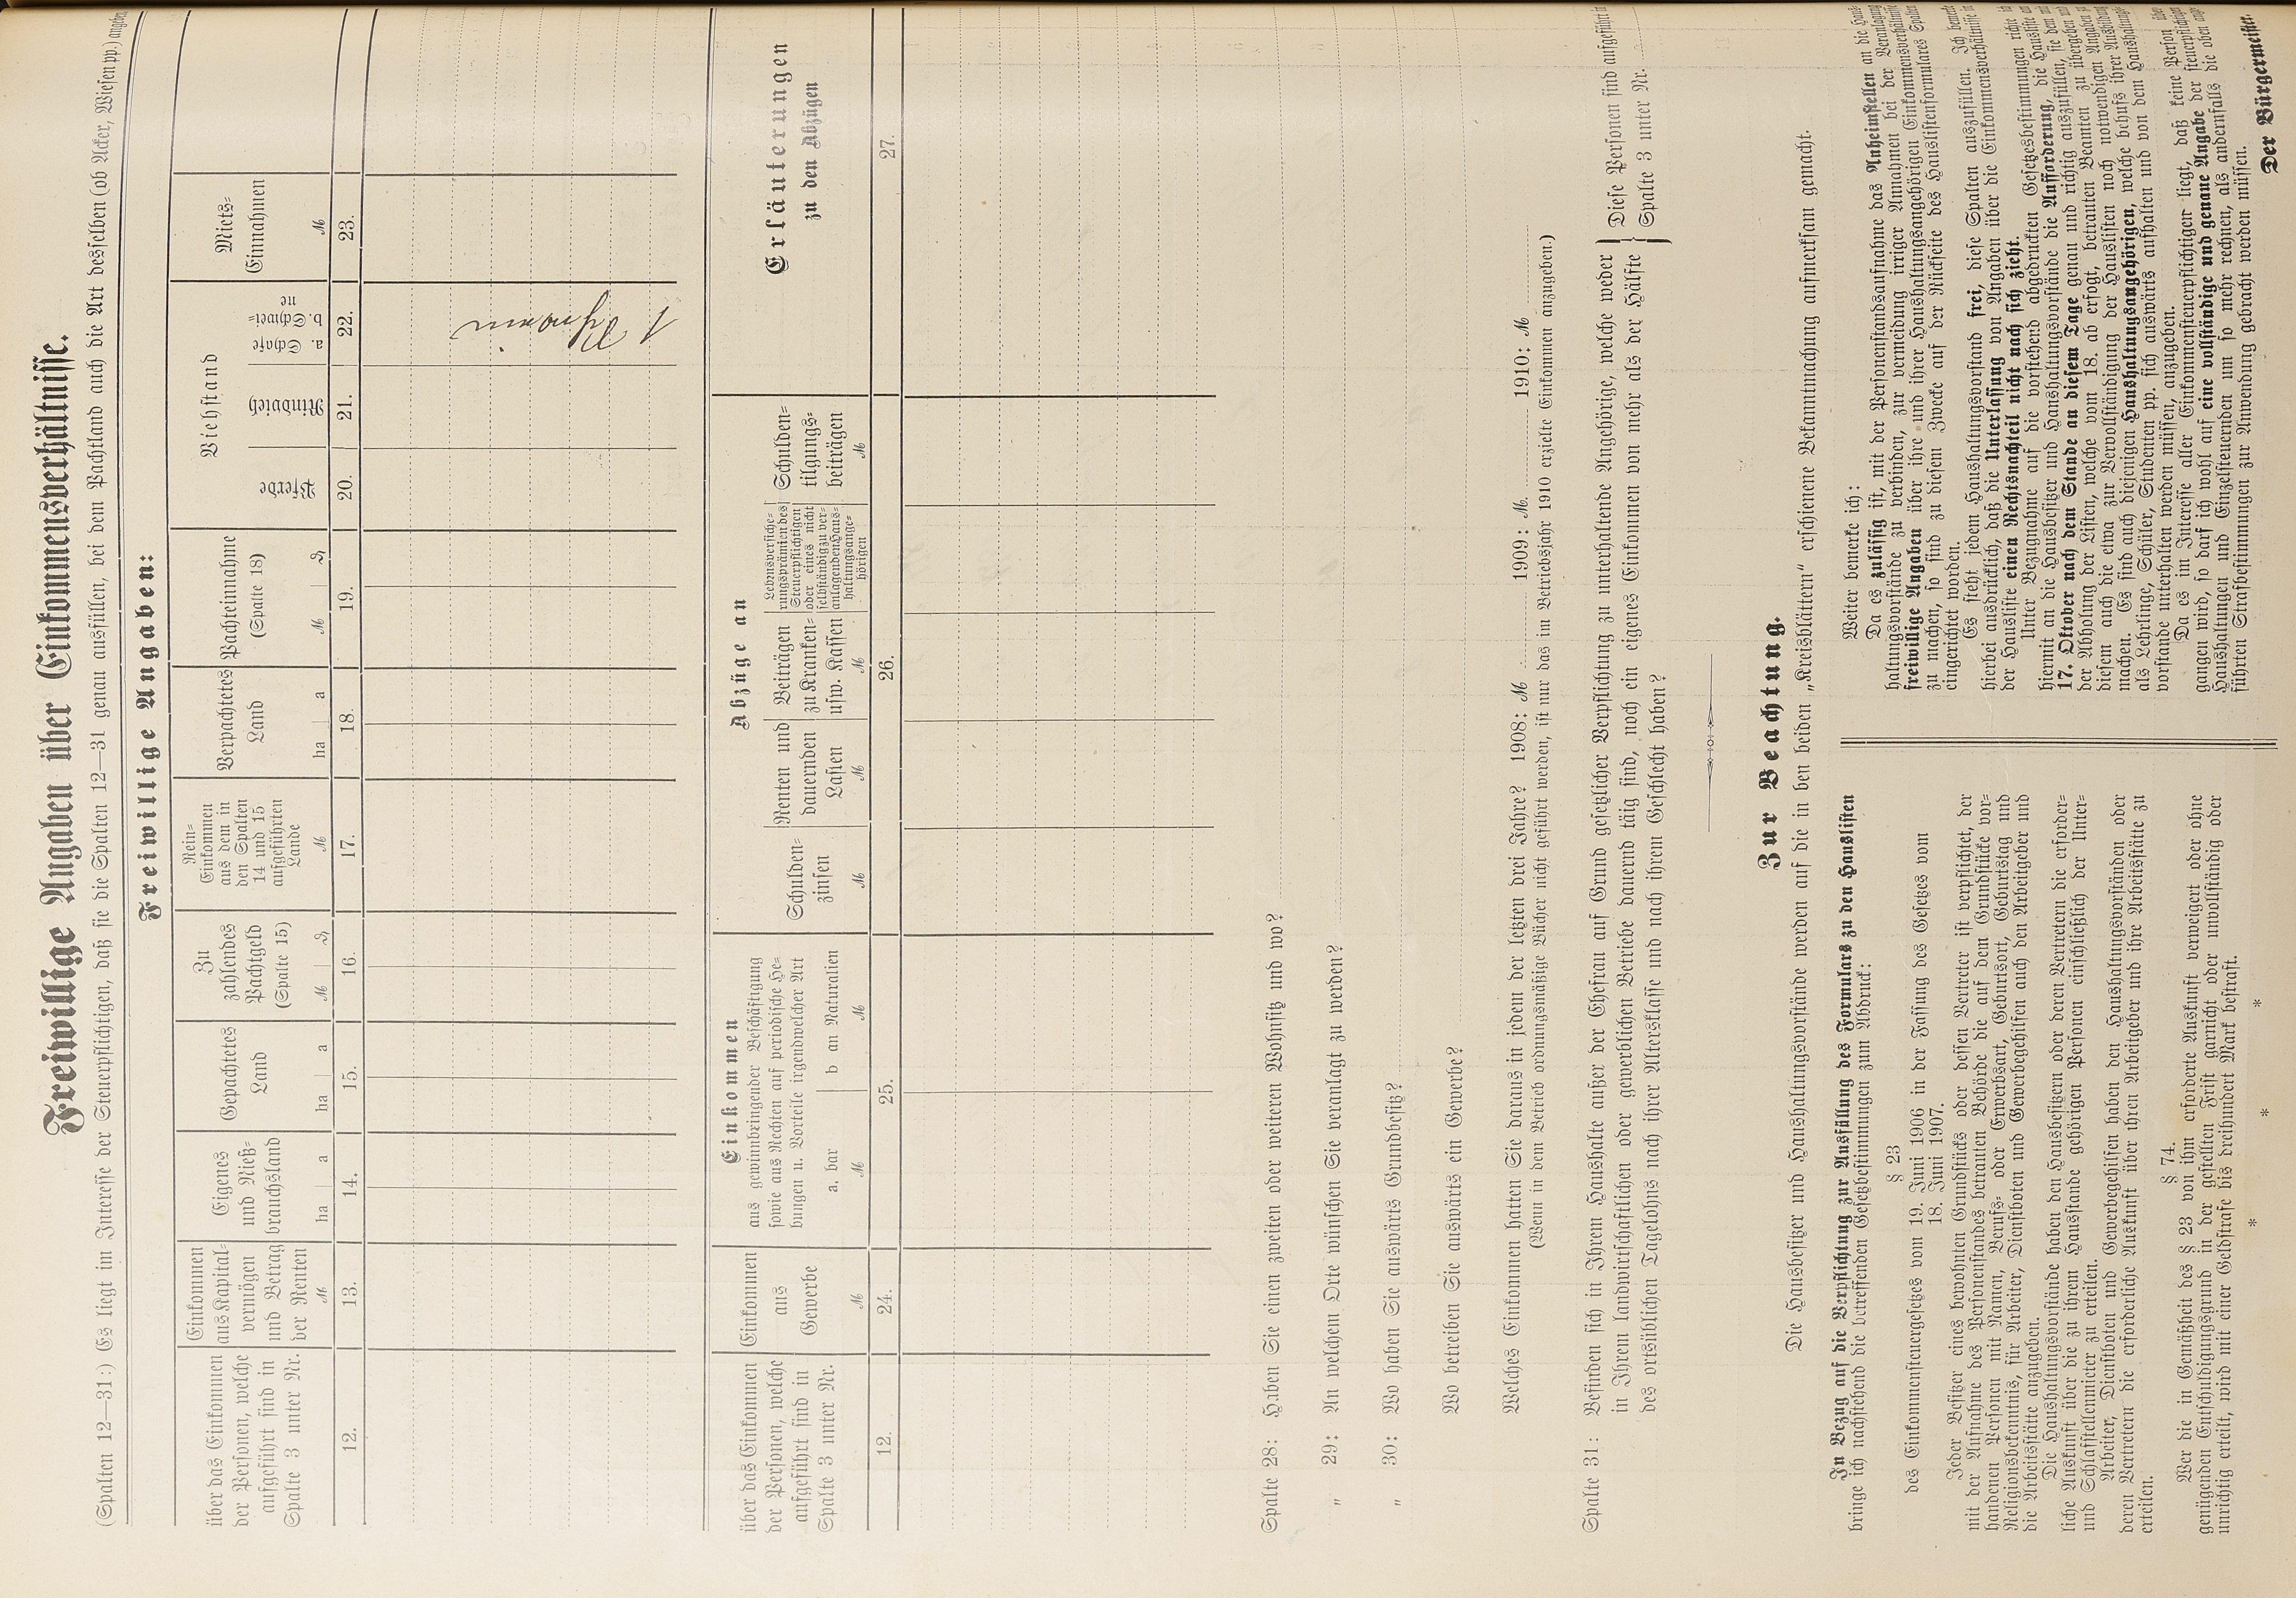 Freiwillige Angaben über Einkommensverhältnisse.
(Spalten 12—31:) Es liegt im Interesse der Steuerpflichtigen, daß sie die Spalten 12—31 genau ausfüllen, bei dem Pachtland auch die Art desselben (ob Acker, Wiesen pp.)
Freiwillige Angaben:
über das Einkommen
der Personen, welche
aufgeführt sind in
Spalte 3 unter Nr.
12.
Einkommen
aus Kapital-
vermögen
und Betrag
der Renten
M
13.
Eigenes
und Nieß-
brauchsland
ha a
14.
Gepachtetes
Land
ha a
15.
Zu
zahlendes
Pachtgeld
(Spalte 15)
M ₰
16.
Rein-
Einkommen
aus dem in
den Spalten
14 und 15
aufgeführten
Lande
M
17.
Verpachtetes
Land
ha a
18.
Pachteinnahme
(Spalte 18)
M ₰
19.
Viehstand
Pferde
20.
Rindvieh
21.
a. Schafe
b. Schwei-
ne
22.
Miets-
Einnahmen
M
23.
1
über das Einkommen
der Personen, welche
aufgeführt sind in
Spalte 3 unter Nr.
12.
Einkommen
aus
Gewerbe
M
24.
Einkommen
aus gewinnbringender Beschäftigung
sowie aus Rechten auf periodische He-
bungen u. Vorteile irgendwelcher Art
a. bar
M
b an Naturalien
M
25.
Abzüge an
Schulden-
zinsen
M
Renten und
dauernden
Lasten
M
Beiträgen
zu Kranken-
usw. Kassen
M
Lebensversiche-
rungsprämien des
Steuerpflichtigen
oder eines nicht
selbständig zu ver-
anlagenden Haus-
haltungsange-
hörigen
Schulden-
tilgungs-
beiträgen
M
26.
Erläuterungen
zu den Abzügen
27.
Spalte 28: Haben Sie einen zweiten oder weiteren Wohnsitz und wo?
„ 29: An welchem Orte wünschen Sie veranlagt zu werden?
„ 30: Wo haben Sie auswärts Grundbesitz?
Wo betreiben Sie auswärts ein Gewerbe?
Welches Einkommen hatten Sie daraus in jedem der letzten drei Jahre? 1908: M 1909: M. 1910: M
(Wenn in dem Betrieb ordnungsmäßige Bücher nicht geführt werden, ist nur das im Betriebsjahr 1910 erzielte Einkommen anzugeben.)
Spalte 31: Befinden sich in Ihrem Haushalte außer der Ehefrau auf Grund gesetzlicher Verpflichtung zu unterhaltende Angehörige, welche weder
in Ihrem landwirtschaftlichen oder gewerblichen Betriebe dauernd tätig sind, noch ein eigenes Einkommen von mehr als der Hälfte
des ortsüblichen Tagelohns nach ihrer Altersklasse und nach ihrem Geschlecht haben?
Diese Personen sind aufgeführt in
Spalte 3 unter Nr.
Zur Beachtung.
Die Hausbesitzer und Haushaltungsvorstände werden auf die in ben beiden „Kreisblättern“ erschienene Bekanntmachung aufmerksam gemacht.
In Bezug auf die Verpflichtung zur Ausfüllung des Formulars zu den Hauslisten
bringe ich nachstehend die betreffenden Gesetzbestimmungen zum Abdruck:
§ 23
des Einkommensteuergesetzes vom 19. Juni 1906 in der Fassung des Gesetzes vom
18. Juni 1907.
Jeder Besitzer eines bewohnten Grundstücks oder dessen Vertreter ist verpflichtet, der
mit der Aufnahme des Personenstandes betrauten Behörde die auf dem Grundstücke vor-
handenen Personen mit Namen, Berufs- oder Erwerbsart, Geburtsort, Geburtstag und
Religionsbekenntnis, für Arbeiter, Dienstboten und Gewerbegehilfen auch den Arbeitgeber und
die Arbeitsstätte anzugeben.
Die Haushaltungsvorstände haben den Hausbesitzern oder deren Vertretern die erforder-
liche Auskunft über die zu ihrem Hausstande gehörigen Personen einschließlich der Unter-
und Schlafstellenmieter zu erteilen.
Arbeiter, Dienstboten und Gewerbegehilfen haben den Haushaltungsvorständen oder
deren Vertretern die erforderliche Auskunft über ihren Arbeitgeber und ihre Arbeitsstätte zu
erteilen.
§ 74.
Wer die in Gemäßheit des § 23 von ihm erforderte Auskunft verweigert oder ohne
genügenden Entschuldigungsgrund in der gestellten Frist garnicht oder unvollständig oder
unrichtig erteilt, wird mit einer Geldstrafe bis dreihundert Mark bestraft.
* * *
Weiter bemerke ich:
Da es zulässig ist, mit der Personenstandsaufnahme das Anheimstellen an die Haus-
haltungsvorstände zu verbinden, zur vermeidung irriger Annahmen bei der Veranlagung
freiwillige Angaben über ihre und ihrer Haushaltungsangehörigen Einkommensverhältnisse
zu machen, so sind zu diesem Zwecke auf der Rückseite des Hauslistenformulares Spalten
eingerichtet worden.
Es steht jedem Haushaltungsvorstand frei, diese Spalten auszufüllen. Ich bemerke
hierbei ausdrücklich, daß die Unterlassung von Angaben über die Einkommensverhältnisse in
der Hausliste einen Rechtsnachteil nicht nach sich zieht.
Unter Bezugnahme auf die vorstehend abgedruckten Gesetzesbestimmungen richte ich
hiermit an die Hausbesitzer und Haushaltungsvorstände die Aufforderung, die Hausliste
17. Oktober nach dem Stande an diesem Tage genau und richtig auszufüllen, sie dem mit
der Abholung der Listen, welche vom 18. ab erfogt, betrauten Beamten zu übergeben
diesem auch die etwa zur Vervollständigung der Hauslisten noch notwendigen Angaben
machen. Es sind auch diejenigen Haushaltungsangehörigen, welche behufs ihrer Ausbildung
als Lehrlinge, Schüler, Studenten pp. sich auswärts aufhalten und von dem Haushaltungs-
vorstande unterhalten werden müssen, anzugeben.
Da es im Interesse aller Einkommensteuerpflichtigen liegt, daß keine Person über
gangen wird, so darf ich wohl auf eine vollständige und genaue Angabe der steuerpflichtigen
Haushaltungen und Einzelsteuernden um so mehr rechnen, als andernfalls die oben
führten Strafbestimmungen zur Anwendung gebracht werden müssen.
Der Bürgermeister.